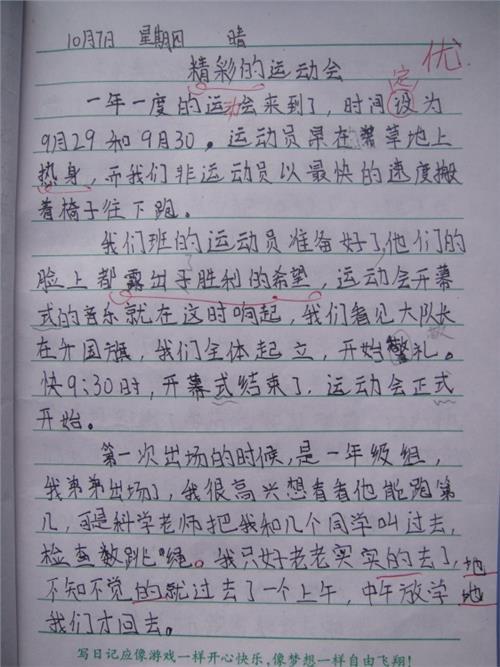 10月7日 星期四 晴
优
精彩的运动会
定
一年一度的运动会来到了，时间设为
9月29和9月30。运动员早在草地上
热身，而我们非运动员以最快的速度搬
着椅子往下跑。
我们班的运动员准备好了他们的
脸上都露出于胜利的希望，运动会开幕
式的音乐就在这时响起，我们看见大队长
在升国旗，我们全体起立，开始警礼。
快9:30时，开幕式结束了，运动会正式
开始。
第一次出场的时候，是一年级组，
我弟弟出场了，我很高兴想看看他能跑第
几，可是科学老师把我和几个同学叫过去，
检查数跳绳。我只好老老实实的去了，地
不知不觉的就过去了一个上午，中午放学 地
我们才回去。
写日记应像游戏一样开心快乐,像梦想一样自由飞翔!